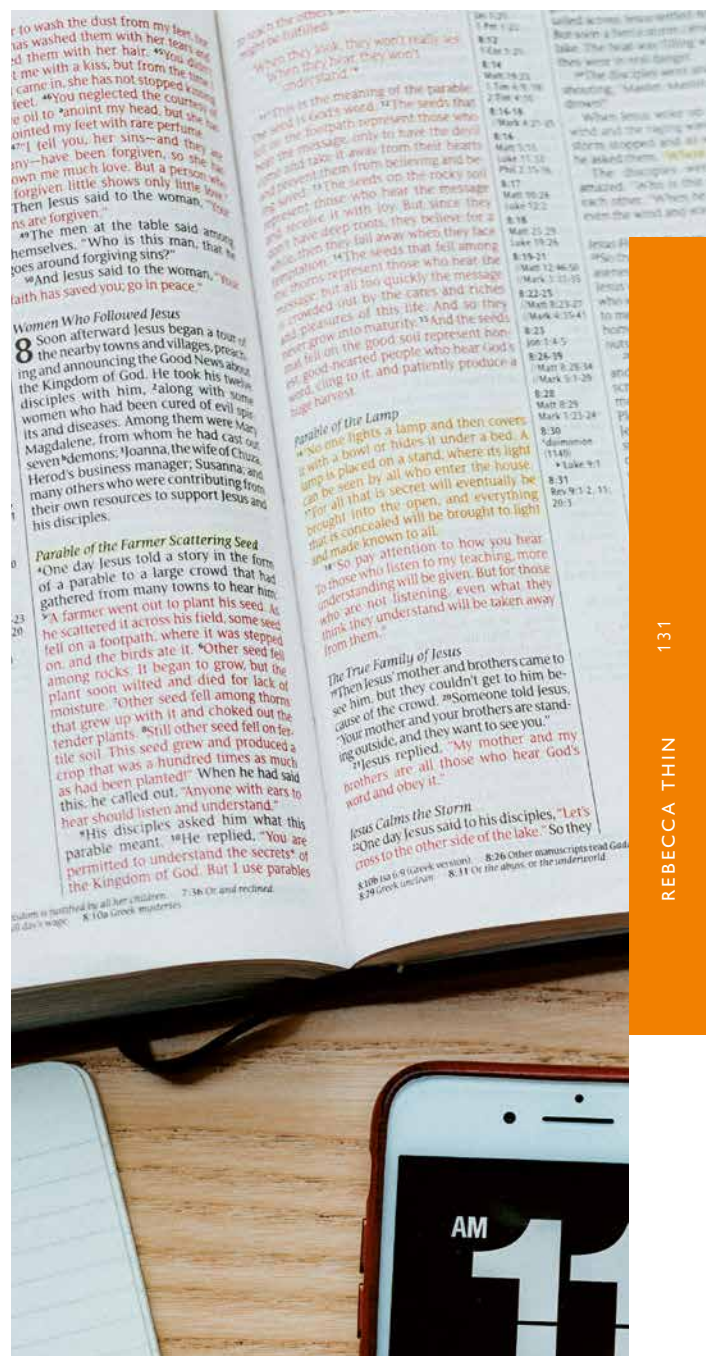 to wash the dust from my feet,
has washed them with her tears and
them with her hair. ⁴⁵You didn't
me with a kiss, but from the time
came in, she has not stopped kissing
feet. ⁴⁶You neglected the courtesy
oil to *anoint my head, but she has
my feet with rare perfume.
"I tell you, her sins—and they are
many—have been forgiven, so she has
me much love. But a person who
forgiven little shows only little love."
Then Jesus said to the woman, "Your
are forgiven."
⁴⁹The men at the table said among
themselves, "Who is this man, that he
goes around forgiving sins?"
⁵⁰And Jesus said to the woman, "Your
faith has saved you; go in peace."
Women Who Followed Jesus
8 Soon afterward Jesus began a tour of
the nearby towns and villages, preach-
ing and announcing the Good News about
the Kingdom of God. He took his twelve
disciples with him, ²along with some
women who had been cured of evil spir-
its and diseases. Among them were Mary
Magdalene, from whom he had cast out
seven demons; ³Joanna, the wife of Chuza,
Herod's business manager; Susanna; and
many others who were contributing from
their own resources to support Jesus and
his disciples.
Parable of the Farmer Scattering Seed
⁴One day Jesus told a story in the form
of a parable to a large crowd that had
gathered from many towns to hear him:
⁵"A farmer went out to plant his seed. As
he scattered it across his field, some seed
fell on a footpath, where it was stepped
on, and the birds ate it. ⁶Other seed fell
among rocks. It began to grow, but the
plant soon wilted and died for lack of
moisture. ⁷Other seed fell among thorns
that grew up with it and choked out the
tender plants. ⁸Still other seed fell on fer-
tile soil. This seed grew and produced a
crop that was a hundred times as much
as had been planted!" When he had said
this, he called out, "Anyone with ears to
hear should listen and understand."
⁹His disciples asked him what this
parable meant. ¹⁰He replied, "You are
permitted to understand the secrets* of
the Kingdom of God. But I use parables
is justified by all her children. 7:36 Or and reclined.
day's wage. 8:10a Greek mysteries.
teach the others
might be fulfilled:
'When they look, they won't really see.
When they hear, they won't
understand.'*
¹¹"This is the meaning of the parable:
The seed is God's word. ¹²The seeds that
fell on the footpath represent those who
hear the message, only to have the devil
come and take it away from their hearts
and prevent them from believing and be-
ing saved. ¹³The seeds on the rocky soil
represent those who hear the message
and receive it with joy. But since they
don't have deep roots, they believe for a
while, then they fall away when they face
temptation. ¹⁴The seeds that fell among
the thorns represent those who hear the
message, but all too quickly the message
is crowded out by the cares and riches
and pleasures of this life. And so they
never grow into maturity. ¹⁵And the seeds
that fell on the good soil represent hon-
est, good-hearted people who hear God's
word, cling to it, and patiently produce a
huge harvest.
Parable of the Lamp
¹⁶"No one lights a lamp and then covers
it with a bowl or hides it under a bed. A
lamp is placed on a stand, where its light
can be seen by all who enter the house.
¹⁷For all that is secret will eventually be
brought into the open, and everything
that is concealed will be brought to light
and made known to all.
¹⁸"So pay attention to how you hear.
To those who listen to my teaching, more
understanding will be given. But for those
who are not listening, even what they
think they understand will be taken away
from them."
The True Family of Jesus
¹⁹Then Jesus' mother and brothers came to
see him, but they couldn't get to him be-
cause of the crowd. ²⁰Someone told Jesus,
"Your mother and your brothers are stand-
ing outside, and they want to see you."
²¹Jesus replied, "My mother and my
brothers are all those who hear God's
word and obey it."
Jesus Calms the Storm
²²One day Jesus said to his disciples, "Let's
cross to the other side of the lake." So they
8:10b Isa 6:9 (Greek version). 8:26 Other manuscripts read
8:29 Greek unclean. 8:31 Or the abyss, or the underworld.
8:12
8:14
8:16-18
Mark 4:21-25
8:16
Matt 5:15
Luke 11:33
Phil 2:15-16
8:17
Matt 10:26
Luke 12:2
8:18
Matt 25:29
Luke 19:26
8:19-21
Matt 12:46-50
Mark 3:31-35
8:22-25
Matt 8:23-27
Mark 4:35-41
8:23
Jon 1:4-5
8:26-39
Matt 8:28-34
Mark 5:1-20
8:28
Matt 8:29
Mark 1:23-24
8:30
daimonion
(1140)
Luke 9:1
8:31
Rev 9:1-2, 11;
20:3
131
REBECCA THIN
AM
11